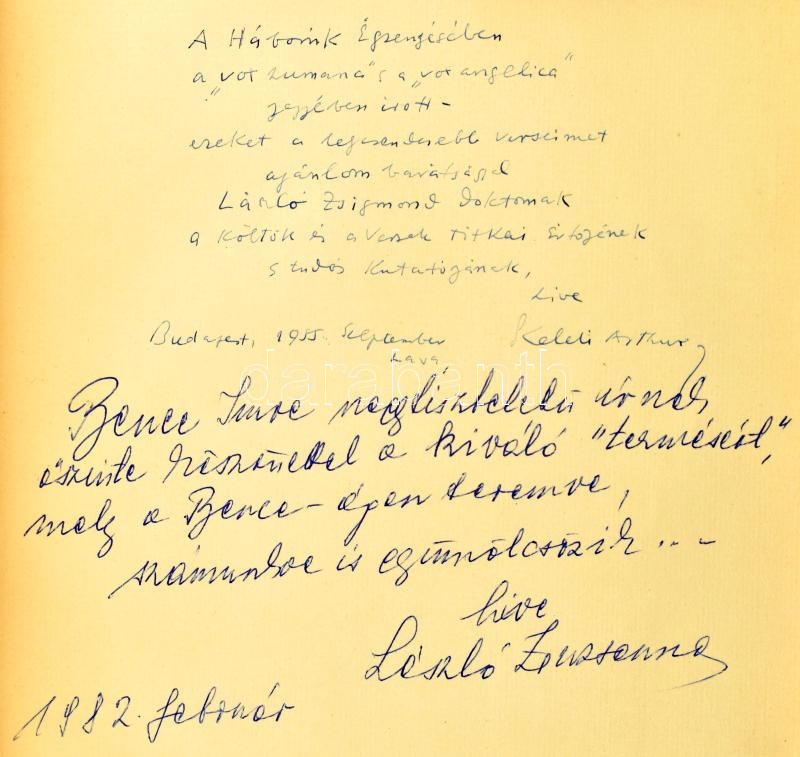 A Háborúk Égzengésében
a "vox humana" s a "vox angelica"
jegyében írott -
ezeket a legcsendesebb verseimet
ajánlom barátsággal
László Zsigmond doktornak
a Költők és a Versek titkai Értőjének
s tudós Kutatójának,
híve
Budapest, 1955. Szeptember Keleti Arthur
hava
darabanth
Bence Imre nagytiszteletű úrnak
őszinte köszönettel a kiváló "termésért",
mely a Bence-ágon teremve,
számunkra is gyümölcsözik...
híve
László Zsuzsanna
1982. február